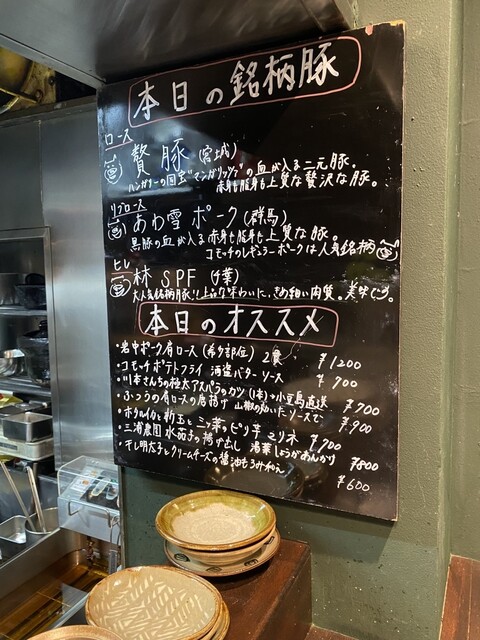 本日の銘柄豚
ロース
贅豚(宮城)
ハンガリーの国宝"マンガリッツァ"の血が入る三元豚。
赤身も脂身も上質な贅沢な豚。
リブロース
あわ雪ポーク(群馬)
黒豚の血が入る赤身も脂身も上質な豚。
コモッチのレギュラーポークは人気銘柄
ヒレ
林SPF(千葉)
大人気銘柄豚!!上品な味わいた、きめ細い肉質。美味です。
本日のオススメ
・岩中ポーク肩ロース(希少部位) 2食 ¥1200
・コモッチポテトフライ 海塩バターソース ¥700
・川本さんちの極太アスパラのカツ(1本)小豆島直送 ¥700
・ふつうの肩ロースの唐揚げ 山椒の効いたソースで ¥900
・ホタルイカと新玉と三ッ葉のピリ辛マリネ ¥700
・三浦農園水茄子の揚げ出し 湯葉しょうがあんかけ ¥800
・干し明太子とクリームチーズの醤油もろみ和え ¥600